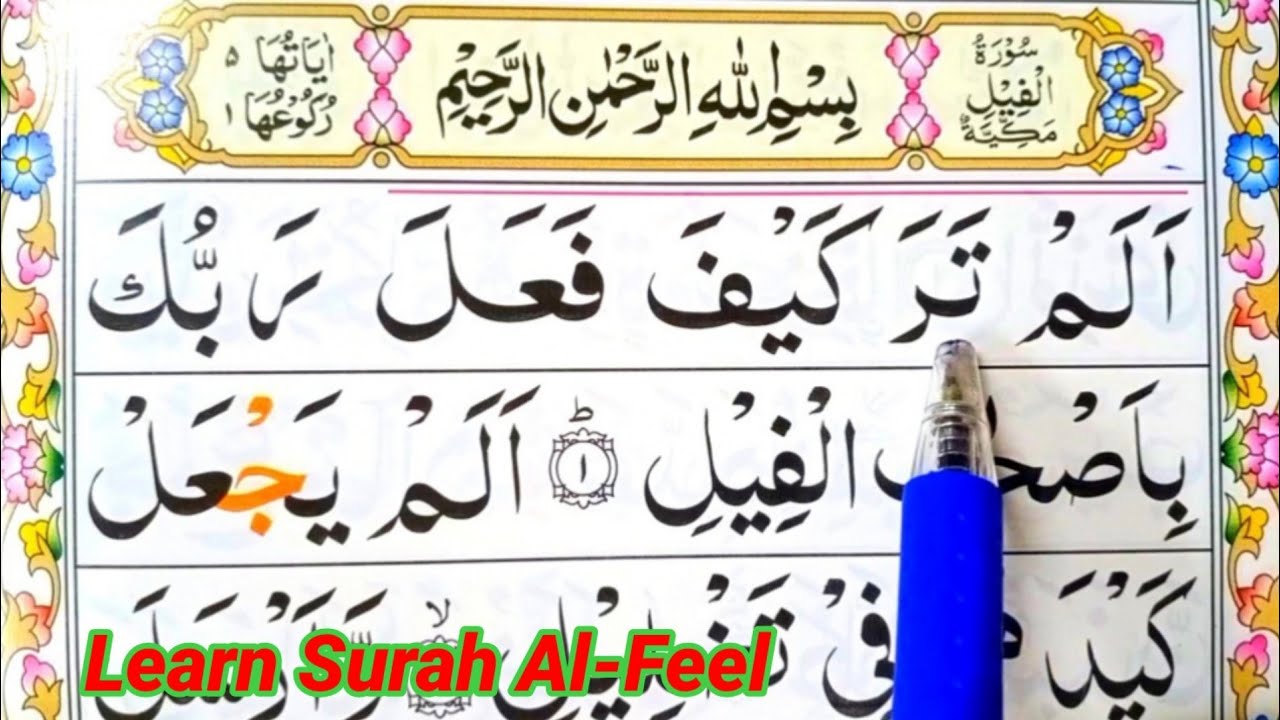 سُوْرَةُ
الْفِيْلِ
مَكِّيَّةٌ
بِسْمِ اللّٰهِ الرَّحْمٰنِ الرَّحِيْمِ
اٰيَاتُهَا ٥
رُكُوْعُهَا ١
اَلَمْ تَرَ كَيْفَ فَعَلَ رَبُّكَ
بِاَصْحٰبِ الْفِيْلِ ؕ ١ اَلَمْ يَجْعَلْ
فِىْ تَضْلِيْلٍ ۙ وَّاَرْسَلَ
Learn Surah Al-Feel